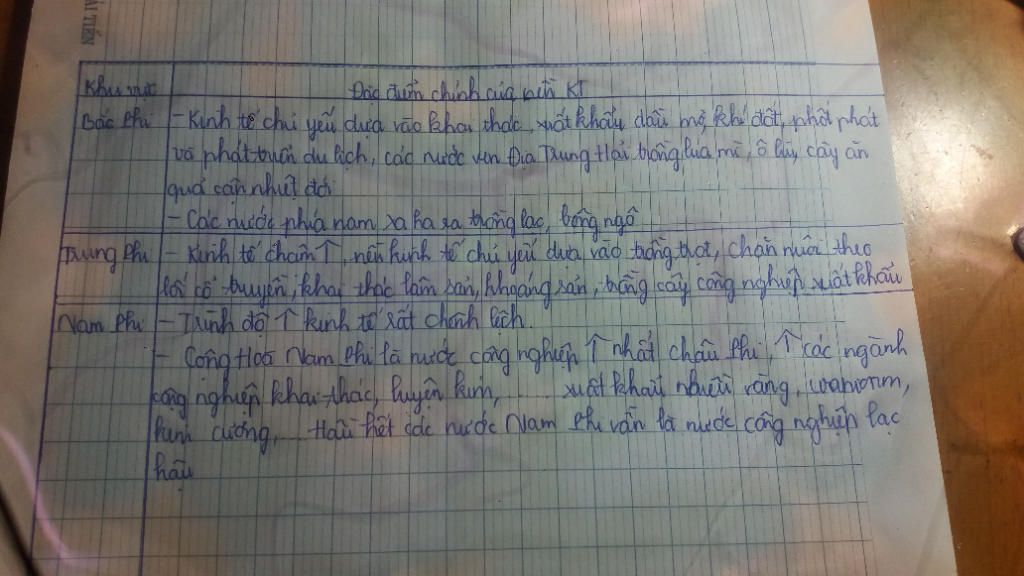 ẢI TIẾN
Khu vực Đặc điểm chính của nền KT
Bắc Phi - Kinh tế chủ yếu dựa vào khai thác, xuất khẩu dầu mỏ, khí đốt, phốt phát
và phát triển du lịch, các nước ven Địa Trung Hải trồng lúa mì, ô liu, cây ăn
quả cận nhiệt đới
- Các nước phía nam xa ha ra trồng lạc, bông ngô
Trung Phi - Kinh tế chậm ↑, nền kinh tế chủ yếu dựa vào trồng trọt, chăn nuôi theo
lối cổ truyền, khai thác lâm sản, khoáng sản, trồng cây công nghiệp xuất khẩu
Nam Phi - Trình độ ↑ kinh tế rất chênh lệch.
- Cộng Hoà Nam Phi là nước công nghiệp ↑ nhất châu Phi, ↑ các ngành
công nghiệp khai thác, luyện kim, ... xuất khẩu nhiều vàng, uranium,
kim cương, ... Hầu hết các nước Nam Phi vẫn là nước công nghiệp lạc
hậu